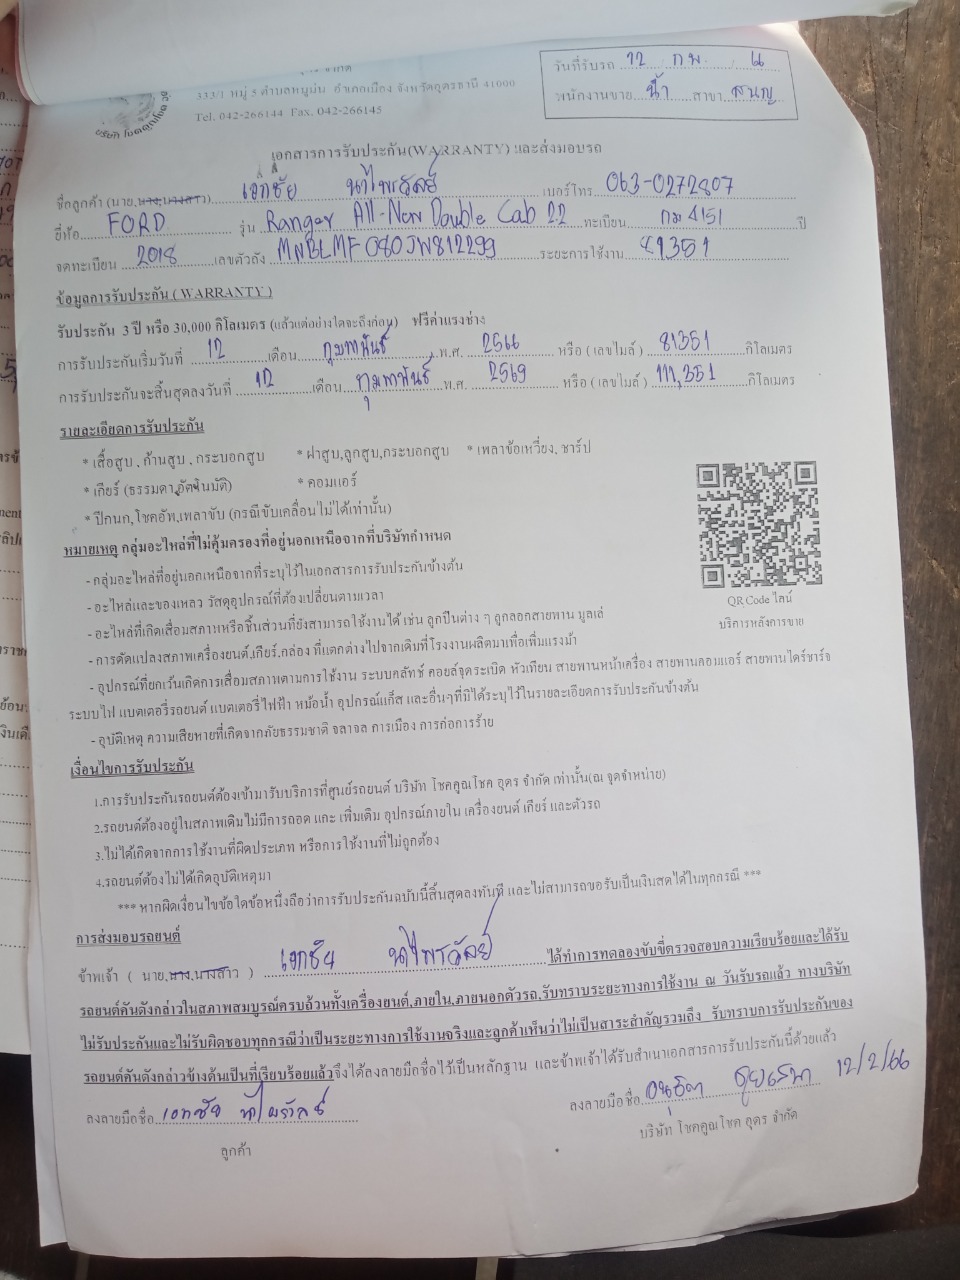 333/1 หมู่ 5 ตำบลหมูม่น อำเภอเมือง จังหวัดอุดรธานี 41000
Tel. 042-266144 Fax. 042-266145
วันที่รับรถ 12 กพ.
พนักงานขาย น้ำ สาขา
เอกสารการรับประกัน(WARRANTY) และส่งมอบรถ
ชื่อลูกค้า (นาย,นาง,นางสาว) เอกชัย นาไพรวัลย์ เบอร์โทร 063-0272807
ยี่ห้อ FORD รุ่น Ranger All-New Double Cab 2.2 ทะเบียน กม 4151 ปี
จดทะเบียน 2018 เลขตัวถัง MNBLMF080JW812299 ระยะการใช้งาน 81351
ข้อมูลการรับประกัน ( WARRANTY )
รับประกัน 3 ปี หรือ 30,000 กิโลเมตร (แล้วแต่อย่างใดจะถึงก่อน) ฟรีค่าแรงช่าง
การรับประกันเริ่มวันที่ 12 เดือน กุมภาพันธ์ พ.ศ. 2566 หรือ ( เลขไมล์ ) 81351 กิโลเมตร
การรับประกันจะสิ้นสุดลงวันที่ 12 เดือน กุมภาพันธ์ พ.ศ. 2569 หรือ ( เลขไมล์ ) 111,351 กิโลเมตร
รายละเอียดการรับประกัน
* เสื้อสูบ , ก้านสูบ , กระบอกสูบ * ฝาสูบ,ลูกสูบ,กระบอกสูบ * เพลาข้อเหวี่ยง, ชาร์ป
* เกียร์ (ธรรมดา,อัตโนมัติ) * คอมแอร์
* ปีกนก, โชคอัพ,เพลาขับ (กรณีขับเคลื่อนไม่ได้เท่านั้น)
หมายเหตุ กลุ่มอะไหล่ที่ไม่คุ้มครองที่อยู่นอกเหนือจากที่บริษัทกำหนด
- กลุ่มอะไหล่ที่อยู่นอกเหนือจากที่ระบุไว้ในเอกสารการรับประกันข้างต้น
- อะไหล่และของเหลว วัสดุอุปกรณ์ที่ต้องเปลี่ยนตามเวลา
- อะไหล่ที่เกิดเสื่อมสภาพหรือชิ้นส่วนที่ยังสามารถใช้งานได้ เช่น ลูกปืนต่าง ๆ ลูกลอกสายพาน มูลเล่
- การดัดแปลงสภาพเครื่องยนต์,เกียร์,กล่อง ที่แตกต่างไปจากเดิมที่โรงงานผลิตมาเพื่อเพิ่มแรงม้า
- อุปกรณ์ที่ยกเว้นเกิดการเสื่อมสภาพตามการใช้งาน ระบบคลัทช์ คอยล์จุดระเบิด หัวเทียน สายพานหน้าเครื่อง สายพานคอมแอร์ สายพานไดร์ชาร์จ
ระบบไฟ แบตเตอรี่รถยนต์ แบตเตอรี่ไฟฟ้า หม้อน้ำ อุปกรณ์แก็ส และอื่นๆที่มิได้ระบุไว้ในรายละเอียดการรับประกันข้างต้น
- อุบัติเหตุ ความเสียหายที่เกิดจากภัยธรรมชาติ จลาจล การเมือง การก่อการร้าย
QR Code ไลน์
บริการหลังการขาย
เงื่อนไขการรับประกัน
1.การรับประกันรถยนต์ต้องเข้ามารับบริการที่ศูนย์รถยนต์ บริษัท โชคคูณโชค อุดร จำกัด เท่านั้น(ณ จุดจำหน่าย)
2.รถยนต์ต้องอยู่ในสภาพเดิมไม่มีการถอด แกะ เพิ่มเติม อุปกรณ์ภายใน เครื่องยนต์ เกียร์ และตัวรถ
3.ไม่ได้เกิดจากการใช้งานที่ผิดประเภท หรือการใช้งานที่ไม่ถูกต้อง
4.รถยนต์ต้องไม่ได้เกิดอุบัติเหตุมา
*** หากผิดเงื่อนไขข้อใดข้อหนึ่งถือว่าการรับประกันฉบับนี้สิ้นสุดลงทันที และไม่สามารถขอรับเป็นเงินสดได้ในทุกกรณี ***
การส่งมอบรถยนต์
ข้าพเจ้า ( นาย,นาง,นางสาว ) เอกชัย นาไพรวัลย์ ได้ทำการทดลองขับขี่ตรวจสอบความเรียบร้อยและได้รับ
รถยนต์คันดังกล่าวในสภาพสมบูรณ์ครบถ้วนทั้งเครื่องยนต์,ภายใน,ภายนอกตัวรถ,รับทราบระยะทางการใช้งาน ณ วันรับรถแล้ว ทางบริษัท
ไม่รับประกันและไม่รับผิดชอบทุกกรณีว่าเป็นระยะทางการใช้งานจริงและลูกค้าเห็นว่าไม่เป็นสาระสำคัญรวมถึง รับทราบการรับประกันของ
รถยนต์คันดังกล่าวข้างต้นเป็นที่เรียบร้อยแล้วจึงได้ลงลายมือชื่อไว้เป็นหลักฐาน และข้าพเจ้าได้รับสำเนาเอกสารการรับประกันนี้ด้วยแล้ว
ลงลายมือชื่อ เอกชัย นาไพรวัลย์ ลงลายมือชื่อ 12/2/66
ลูกค้า บริษัท โชคคูณโชค อุดร จำกัด